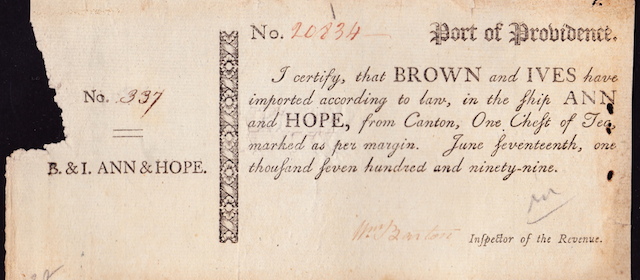 No. 20834
Port of Providence.
I certify, that BROWN and IVES have
imported according to law, in the ſhip ANN
and HOPE, from Canton, One Cheſt of Tea,
marked as per margin. June ſeventeenth, one
thouſand ſeven hundred and ninety-nine.
Wm Barton
Inſpector of the Revenue.
No. 337
B. & I. ANN & HOPE.